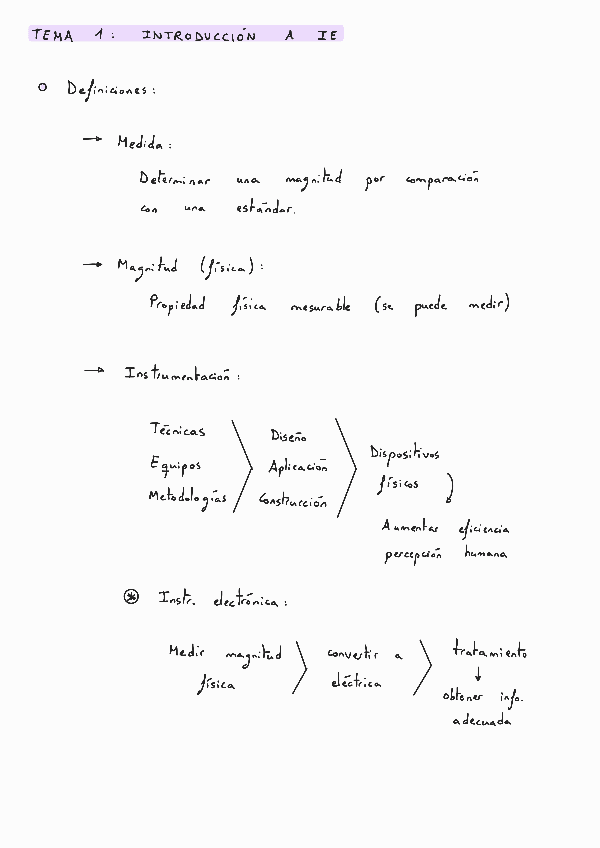 TEMA 1: INTRODUCCIÓN A IE
Definiciones:
→ Medida:
Determinar una magnitud por comparación
con una estándar.
→ Magnitud (física):
Propiedad física mesurable (se puede medir)
→ Instrumentación:
Técnicas
Equipos
Metodologías
Diseño
Aplicación
Construcción
Dispositivos
físicos
Aumentar eficiencia
percepción humana
Instr. electrónica:
Medir magnitud
física
convertir a
eléctrica
tratamiento
↓
obtener info.
adecuada